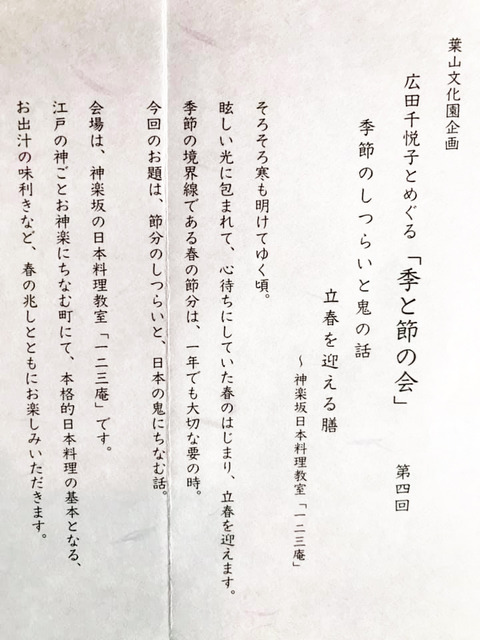 葉山文化園企画
広田千悦子とめぐる「季と節の会」 第四回
季節のしつらいと鬼の話
立春を迎える膳
～神楽坂日本料理教室「一二三庵」
そろそろ寒も明けてゆく頃。
眩しい光に包まれて、心待ちにしていた春のはじまり、立春を迎えます。
季節の境界線である春の節分は、一年でも大切な要の時。
今回のお題は、節分のしつらいと、日本の鬼にちなむ話。
会場は、神楽坂の日本料理教室「一二三庵」です。
江戸の神ごとお神楽にちなむ町にて、本格的日本料理の基本となる、
お出汁の味利きなど、春の兆しとともにお楽しみいただきます。